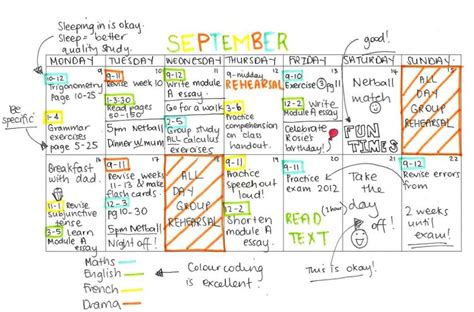 Sleeping in is okay.
Sleep = better
quality study.
SEPTEMBER
good!
MONDAY TUESDAY WEDNESDAY THURSDAY FRIDAY SATURDAY SUNDAY
Be
specific
9
10-12
Trigonometry
Page 10-25
1-4
Grammar
exercises
page 5-25
10
9-11
Revise week 10
1-3:30
Read pages
50-150
5pm Netball
Dinner w/ Mum
11
9-12
Write module
A essay.
Go for a walk
2-5
Group study
ALL calculus
exercises
12
9-midday
REHEARSAL
3-6
Practice
comprehension
on
handout.
13
9-10
Exercise 3 pg 11
11-2 Write
Module A
essay
Celebrate
Rosie's
birthday!
14
Netball
match
FUN
TIMES
15
ALL
DAY
GROUP
REHEARSAL
16
Breakfast
with dad.
11-1 Revise
subjunctive
tense
3-5 learn
Module A essay
17
9-11
Revise weeks
11/12 & make
flash cards.
2-3
pg 10-30
5pm Netball
Night off!
18
ALL
DAY
GROUP
REHEARSAL
19
9-11
Practice
speech out
loud!
12-6
Shorten
module A
essay.
20
9-11
Practice
exam 2012
READ
TEXT
21
Take
the
day
off!
22
9-12
Revise errors
from
2 weeks
until
exam!
Maths
English
French
Drama
Colour coding
is excellent.
This is okay!